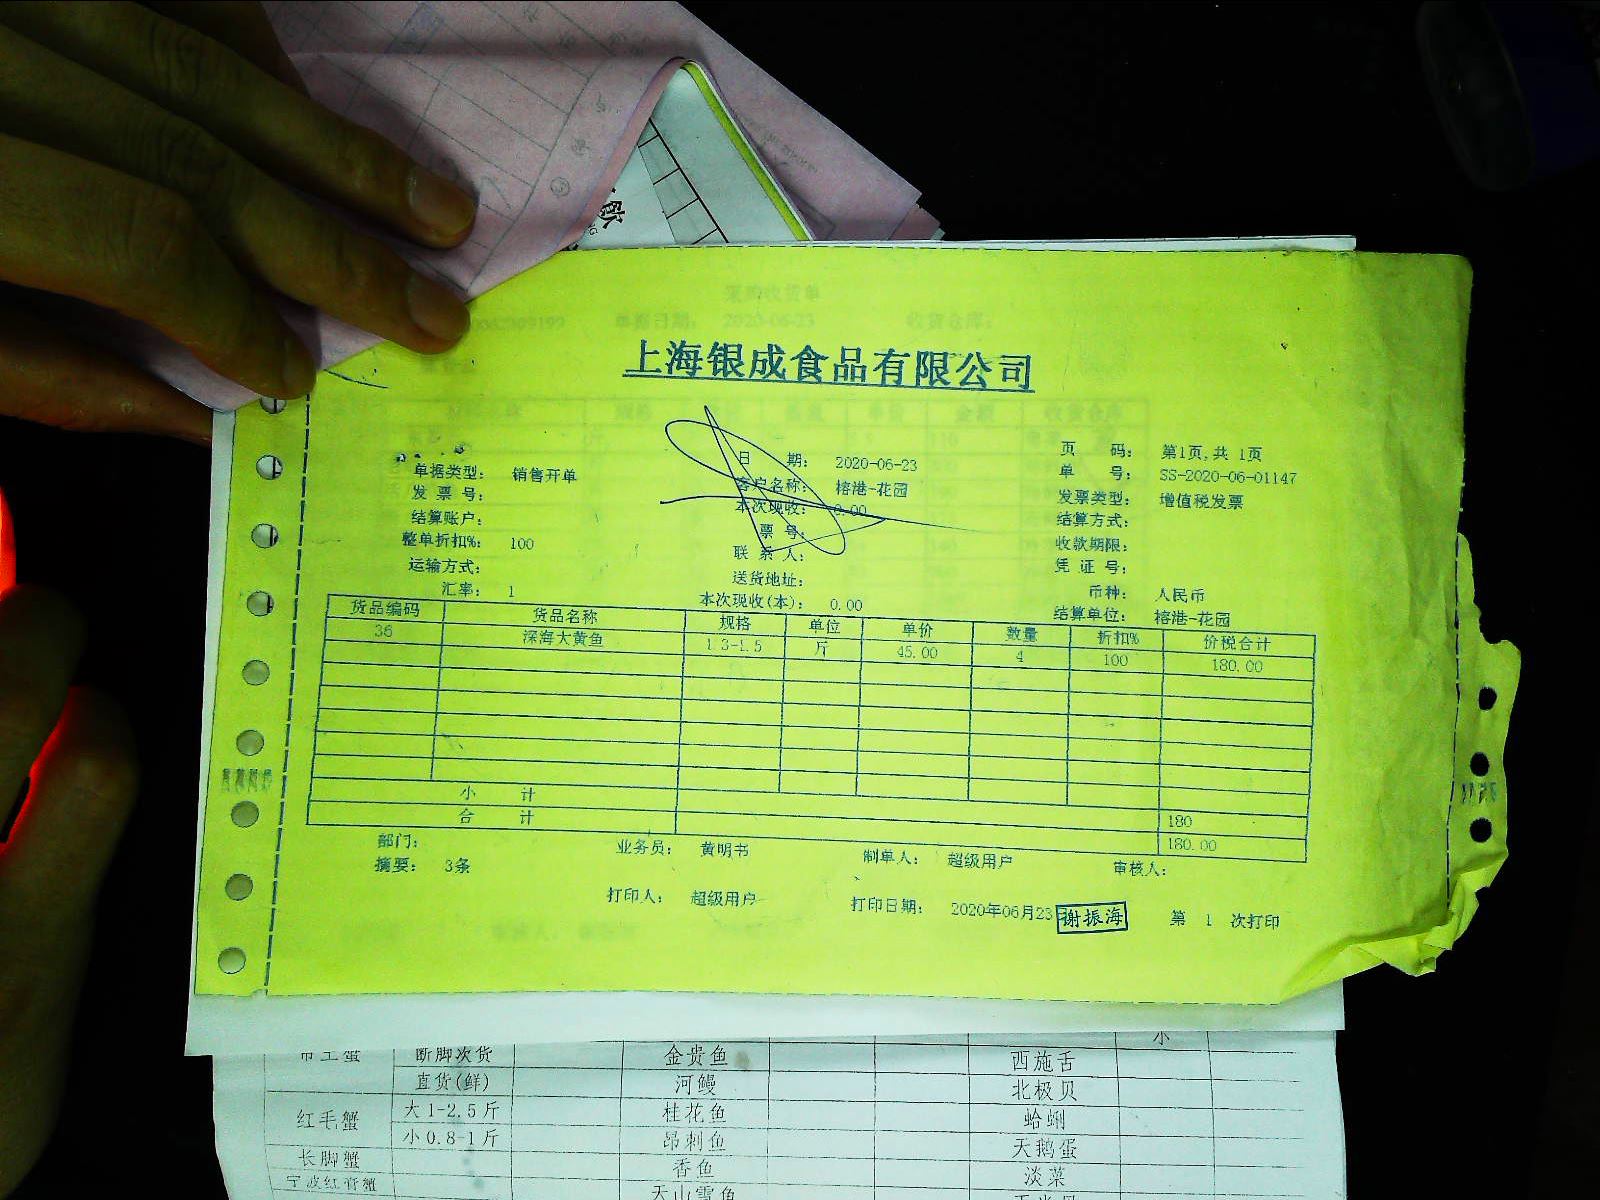 飲
采购收货单
单据日期: 2020-06-23 收货仓库:
上海银成食品有限公司
单据类型: 销售开单 日 期: 2020-06-23 页 码: 第1页,共 1页
发 票 号: 客户名称: 榕港-花园 单 号: SS-2020-06-01147
结算账户: 本次现收: 0.00 发票类型: 增值税发票
整单折扣%: 100 票 号: 结算方式:
运输方式: 联 系 人: 收款期限:
汇率: 1 送货地址: 凭 证 号:
本次现收(本): 0.00 币种: 人民币
结算单位: 榕港-花园
货品编码 货品名称 规格 单位 单价 数量 折扣% 价税合计
36 深海大黄鱼 1.3-1.5 斤 45.00 4 100 180.00
小 计 180
合 计 180.00
部门: 业务员: 黄明书 制单人: 超级用户 审核人:
摘要: 3条
打印人: 超级用户 打印日期: 2020年06月23 谢振海 第 1 次打印
断脚次货 金贵鱼 西施舌
直货(鲜) 河鳗 北极贝
红毛蟹 大1-2.5斤 桂花鱼 蛤蜊
小0.8-1斤 昂刺鱼 天鹅蛋
长脚蟹 香鱼 淡菜
宁波红膏蟹 天山雪鱼